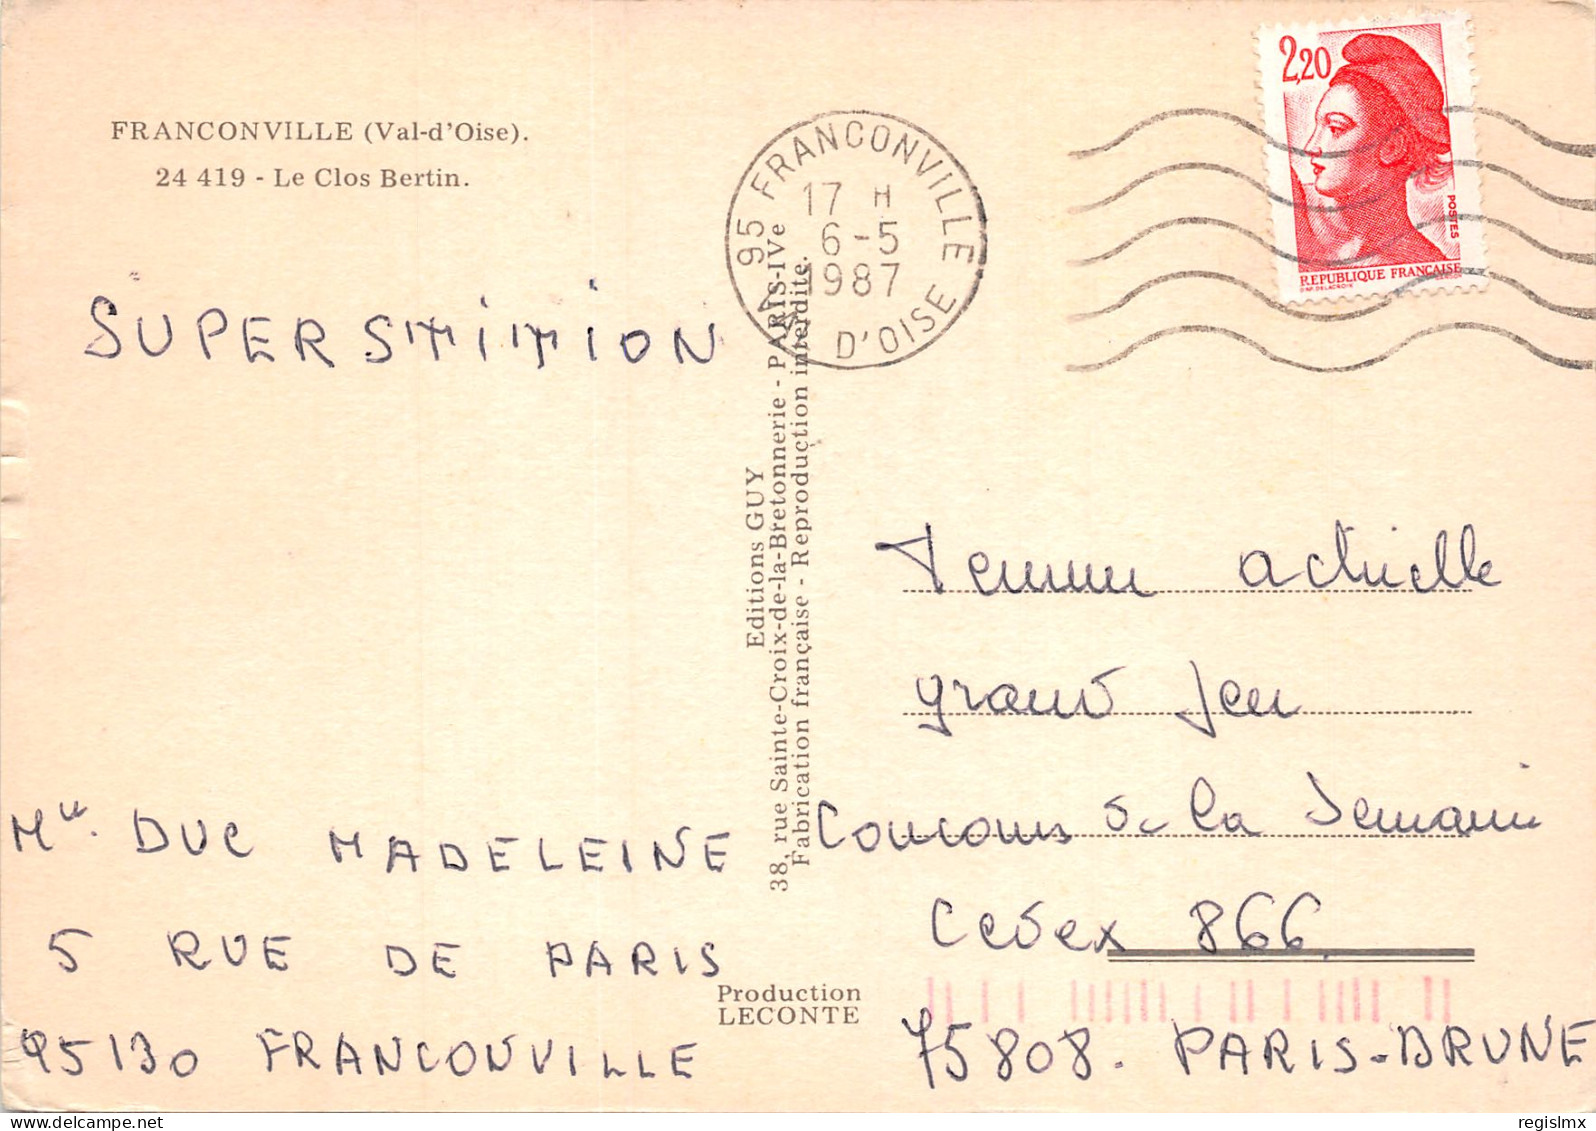 FRANCONVILLE (Val-d'Oise).
24 419 - Le Clos Bertin.
SUPERSTITION
Mlle. DUC MADELEINE
5 RUE DE PARIS
95130 FRANCONVILLE
Editions GUY
38, rue Sainte-Croix-de-la-Bretonnerie - PARIS-IVe
Fabrication française - Reproduction interdite.
Production
LECONTE
95 FRANCONVILLE
17 H
6-5
1987
D'OISE
2,20
POSTES
REPUBLIQUE FRANÇAISE
D'AP. DELACROIX
Femme actuelle
grand Jeu
Concours de la Semaine
Cedex 866
75808. PARIS-BRUNE
regislmx